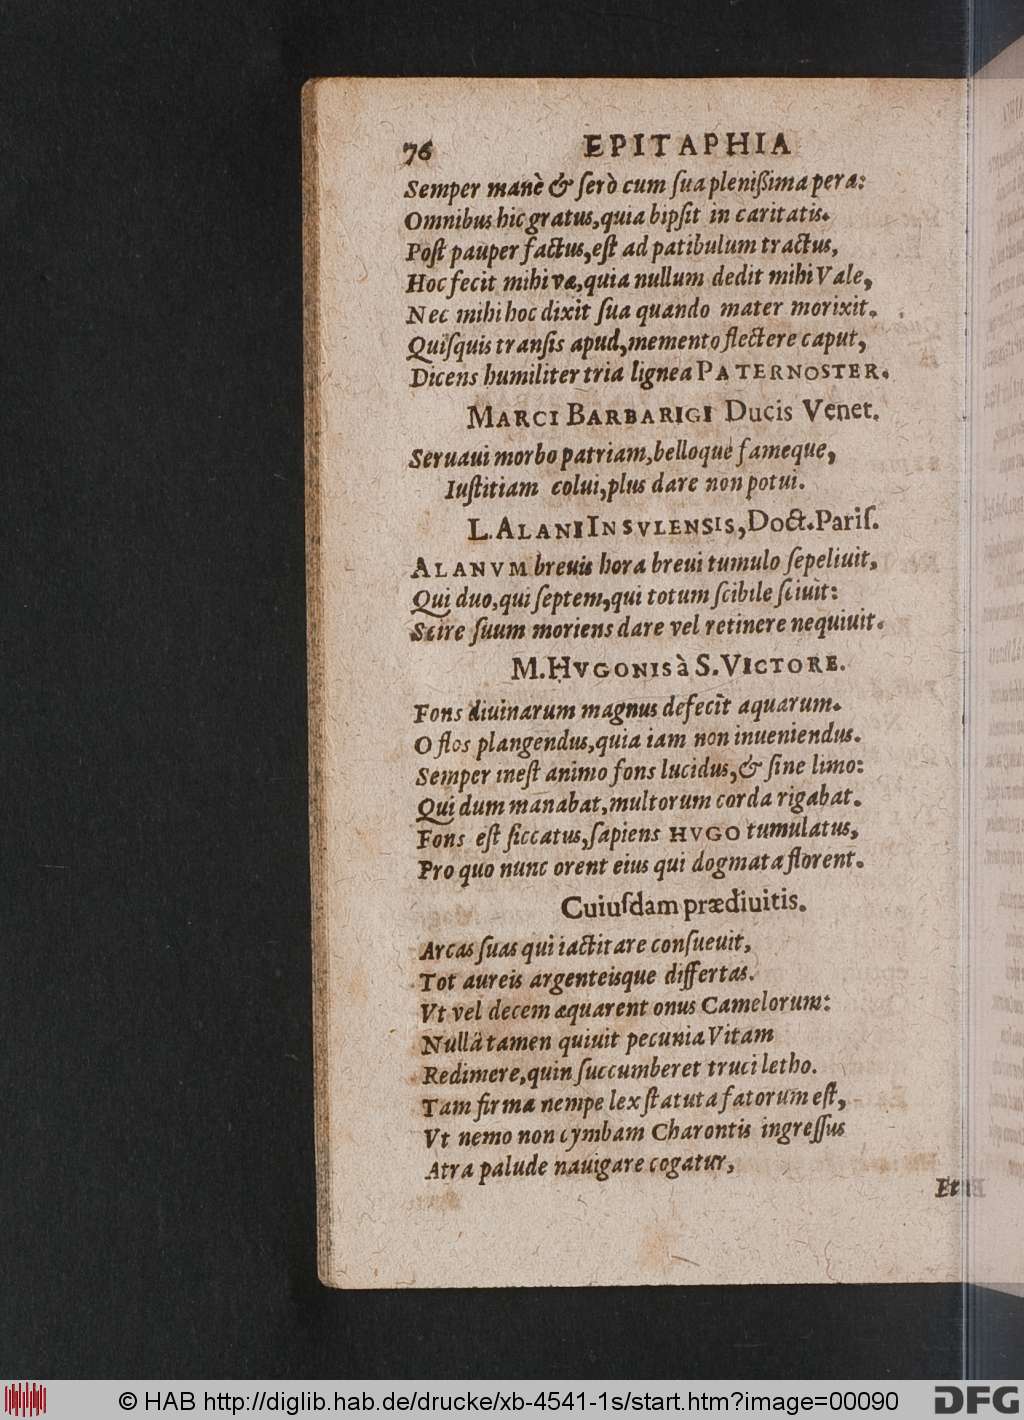 76 EPITAPHIA
Semper manè & ſerò cum ſua pleniſſima pera:
Omnibus hic gratus, quia bipſit in caritatis.
Poſt pauper factus, eſt ad patibulum tractus,
Hoc fecit mihi væ, quia nullum dedit mihi Vale,
Nec mihi hoc dixit ſua quando mater morixit.
Quiſquis tranſis apud, memento flectere caput,
Dicens humiliter tria lignea PATERNOSTER.
MARCI BARBARIGI Ducis Venet.
Seruaui morbo patriam, belloque fameque,
Iuſtitiam colui, plus dare non potui.
L. ALANI INSVLENSIS, Doct. Pariſ.
ALANVM breuis hora breui tumulo ſepeliuit,
Qui duo, qui ſeptem, qui totum ſcibile ſciuit:
Scire ſuum moriens dare vel retinere nequiuit.
M. HVGONIS à S. VICTORE.
Fons diuinarum magnus defecit aquarum.
O flos plangendus, quia iam non inueniendus.
Semper ineſt animo fons lucidus, & ſine limo:
Qui dum manabat, multorum corda rigabat.
Fons eſt ſiccatus, ſapiens HVGO tumulatus,
Pro quo nunc orent eius qui dogmata florent.
Cuiuſdam prædiuitis.
Arcas ſuas qui iactitare conſueuit,
Tot aureis argenteisque differtas.
Vt vel decem æquarent onus Camelorum:
Nullâ tamen quiuit pecunia Vitam
Redimere, quin ſuccumberet truci letho.
Tam firma nempe lex ſtatuta fatorum eſt,
Vt nemo non cymbam Charontis ingreſſus
Atra palude nauigare cogatur,
Et
© HAB http://diglib.hab.de/drucke/xb-4541-1s/start.htm?image=00090
DFG